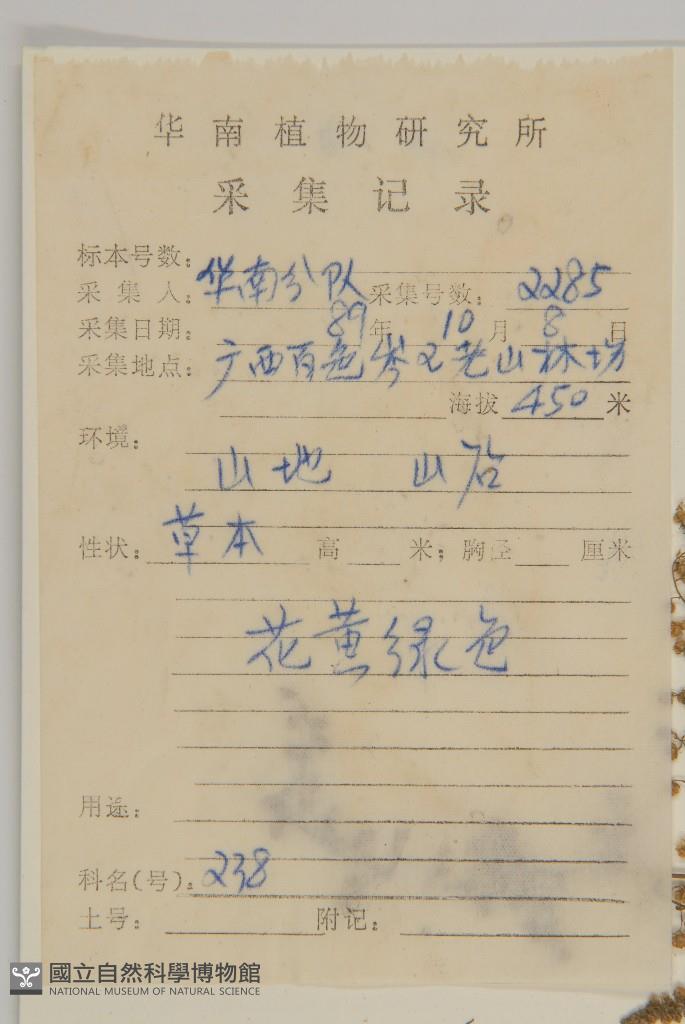 华南植物研究所
采集记录
标本号数:
采集人: 华南分队 采集号数: 2285
采集日期: 89年 10月 8日
采集地点: 广西百色岑王老山林场
海拔 450 米
环境:
山地 山谷
性状: 草本 高 米; 胸径 厘米
花黄绿色
用途:
科名(号): 238
土号: 附记:
國立自然科學博物館
NATIONAL MUSEUM OF NATURAL SCIENCE